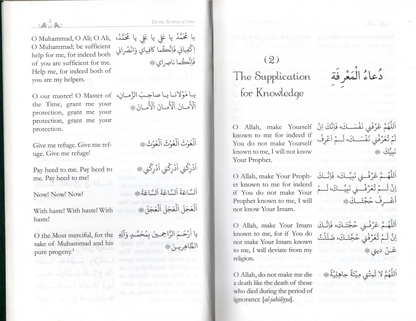 DIVINE SUPPLICATIONS
O Muhammad, O Ali; O Ali,
O Muhammad; be sufficient
help for me, for indeed both
of you are sufficient for me.
Help me, for indeed both of
you are my helpers.
يَا مُحَمَّدُ يَا عَلِيُّ يَا عَلِيُّ يَا مُحَمَّدُ،
إِكْفِيَانِي فَإِنَّكُمَا كَافِيَايَ وَانْصُرَانِي
فَإِنَّكُمَا نَاصِرَايَ
O our Master! O Master of
the Time, grant me your
protection, grant me your
protection, grant me your
protection.
يَا مَوْلَانَا يَا صَاحِبَ الزَّمَانِ،
الْأَمَانَ الْأَمَانَ الْأَمَانَ
Give me refuge. Give me refuge.
Give me refuge!
الْغَوْثَ الْغَوْثَ الْغَوْثَ
Pay heed to me. Pay heed to
me. Pay heed to me!
أَدْرِكْنِي أَدْرِكْنِي أَدْرِكْنِي
Now! Now! Now!
السَّاعَةَ السَّاعَةَ السَّاعَةَ
With haste! With haste! With
haste!
الْعَجَلَ الْعَجَلَ الْعَجَلَ
O the Most merciful, for the
sake of Muhammad and his
pure progeny.¹
يَا أَرْحَمَ الرَّاحِمِينَ بِمُحَمَّدٍ وَآلِهِ
الطَّاهِرِينَ
(2)
The Supplication
for Knowledge
دُعَاءُ الْمَعْرِفَةِ
O Allah, make Yourself
known to me for indeed if
You do not make Yourself
known to me, I will not know
Your Prophet.
اَللَّهُمَّ عَرِّفْنِي نَفْسَكَ، فَإِنَّكَ إِنْ
لَمْ تُعَرِّفْنِي نَفْسَكَ لَمْ أَعْرِفْ
نَبِيَّكَ
O Allah, make Your Proph-
et known to me for indeed
if You do not make Your
Prophet known to me, I will
not know Your Imam.
اَللَّهُمَّ عَرِّفْنِي نَبِيَّكَ، فَإِنَّكَ
إِنْ لَمْ تُعَرِّفْنِي نَبِيَّكَ لَمْ أَعْرِفْ
حُجَّتَكَ
O Allah, make Your Imam
known to me, for if You do
not make Your Imam known
to me, I will deviate from my
religion.
اَللَّهُمَّ عَرِّفْنِي حُجَّتَكَ، فَإِنَّكَ
إِنْ لَمْ تُعَرِّفْنِي حُجَّتَكَ، ضَلَلْتُ
عَنْ دِينِي
O Allah, do not make me die
a death like the death of those
who died during the period of
ignorance [al-jahiliyya].
اَللَّهُمَّ لَا تُمِتْنِي مِيتَةً جَاهِلِيَّةً